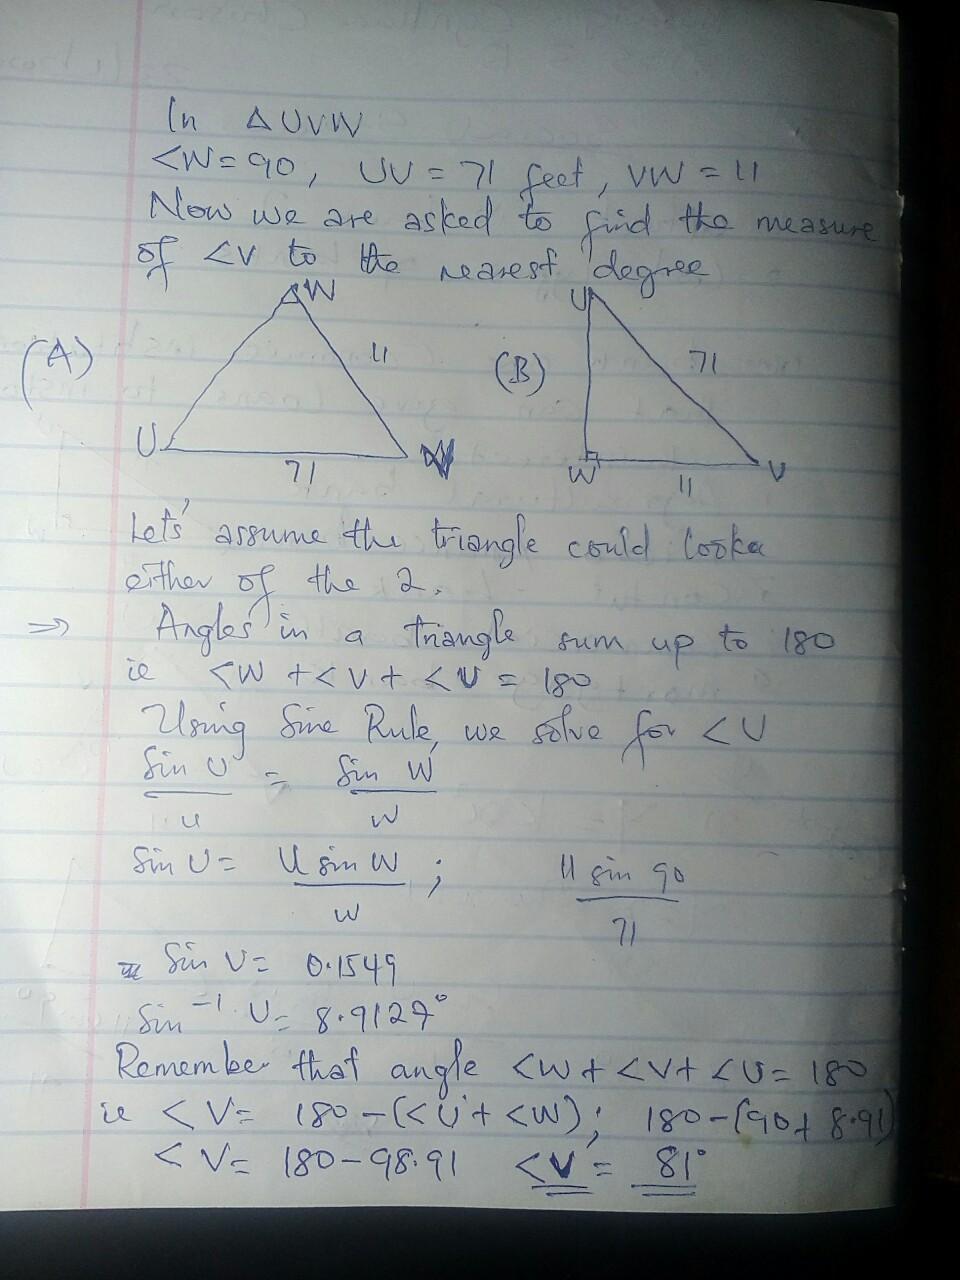 In △UVW
<W=90, UV = 71 feet, VW = 11
Now we are asked to find the measure
of <V to the nearest degree
(A)
W
11
U
71
(B)
U
71
W
11
V
Lets' assume the triangle could looka
either of the 2.
⇒ Angles in a triangle sum up to 180
ie <W + <V + <U = 180
Using Sine Rule, we solve for <U
Sin U / u = Sin W / w
Sin U = U sin W / w ; 11 sin 90 / 71
Sin U = 0.1549
Sin⁻¹ U = 8.9127°
Remember that angle <W + <V + <U = 180
ie <V = 180 - (<U + <W); 180 - (90 + 8.91)
<V = 180 - 98.91 <V = 81°